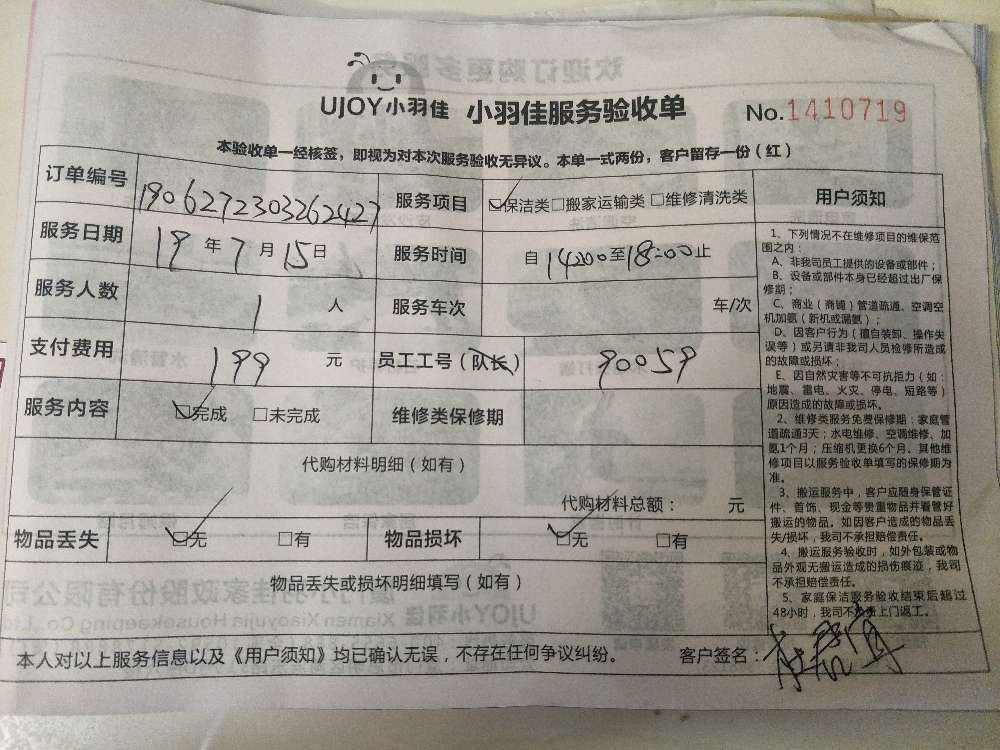 UJOY小羽佳 小羽佳服务验收单 No.1410719
本验收单一经核签，即视为对本次服务验收无异议。本单一式两份，客户留存一份（红）
订单编号 1906272303262427 服务项目 保洁类 搬家运输类 维修清洗类
服务日期 19年7月15日 服务时间 自14:00至18:00止
服务人数 1人 服务车次 车/次
支付费用 199元 员工工号（队长） 90059
服务内容 完成 未完成 维修类保修期
代购材料明细（如有）
代购材料总额： 元
物品丢失 无 有 物品损坏 无 有
物品丢失或损坏明细填写（如有）
本人对以上服务信息以及《用户须知》均已确认无误，不存在任何争议纠纷。 客户签名：
用户须知
1、下列情况不在维修项目的维保范
围之内：
A、非我司员工提供的设备或部件；
B、设备或部件本身已经超过出厂保
修期；
C、商业（商铺）管道疏通、空调空
机加氨（新机或漏氨）；
D、因客户行为（擅自装卸、操作失
误等）或另请非我司人员检修所造成
的故障或损坏；
E、因自然灾害等不可抗拒力（如：
地震、雷电、火灾、停电、短路等）
原因造成的故障或损坏。
2、维修类服务免费保修期：家庭管
道疏通3天；水电维修、空调维修、加
氨1个月；压缩机更换6个月。其他维
修项目以服务验收单填写的保修期为
准。
3、搬运服务中，客户应随身保管证
件、首饰、现金等贵重物品并看管好
搬运的物品。如因客户造成的物品丢
失/损坏，我司不承担赔偿责任。
4、搬运服务验收时，如外包装或物
品外观无搬运造成的损伤痕迹，我司
不承担赔偿责任。
5、家庭保洁服务验收结束后超过
48小时，我司不负责上门返工。
欢迎订购更多服
厦门小羽佳家政股份有限公司
UJOY小羽佳 Xiamen Xiaoyujia Housekeeping Co., Ltd